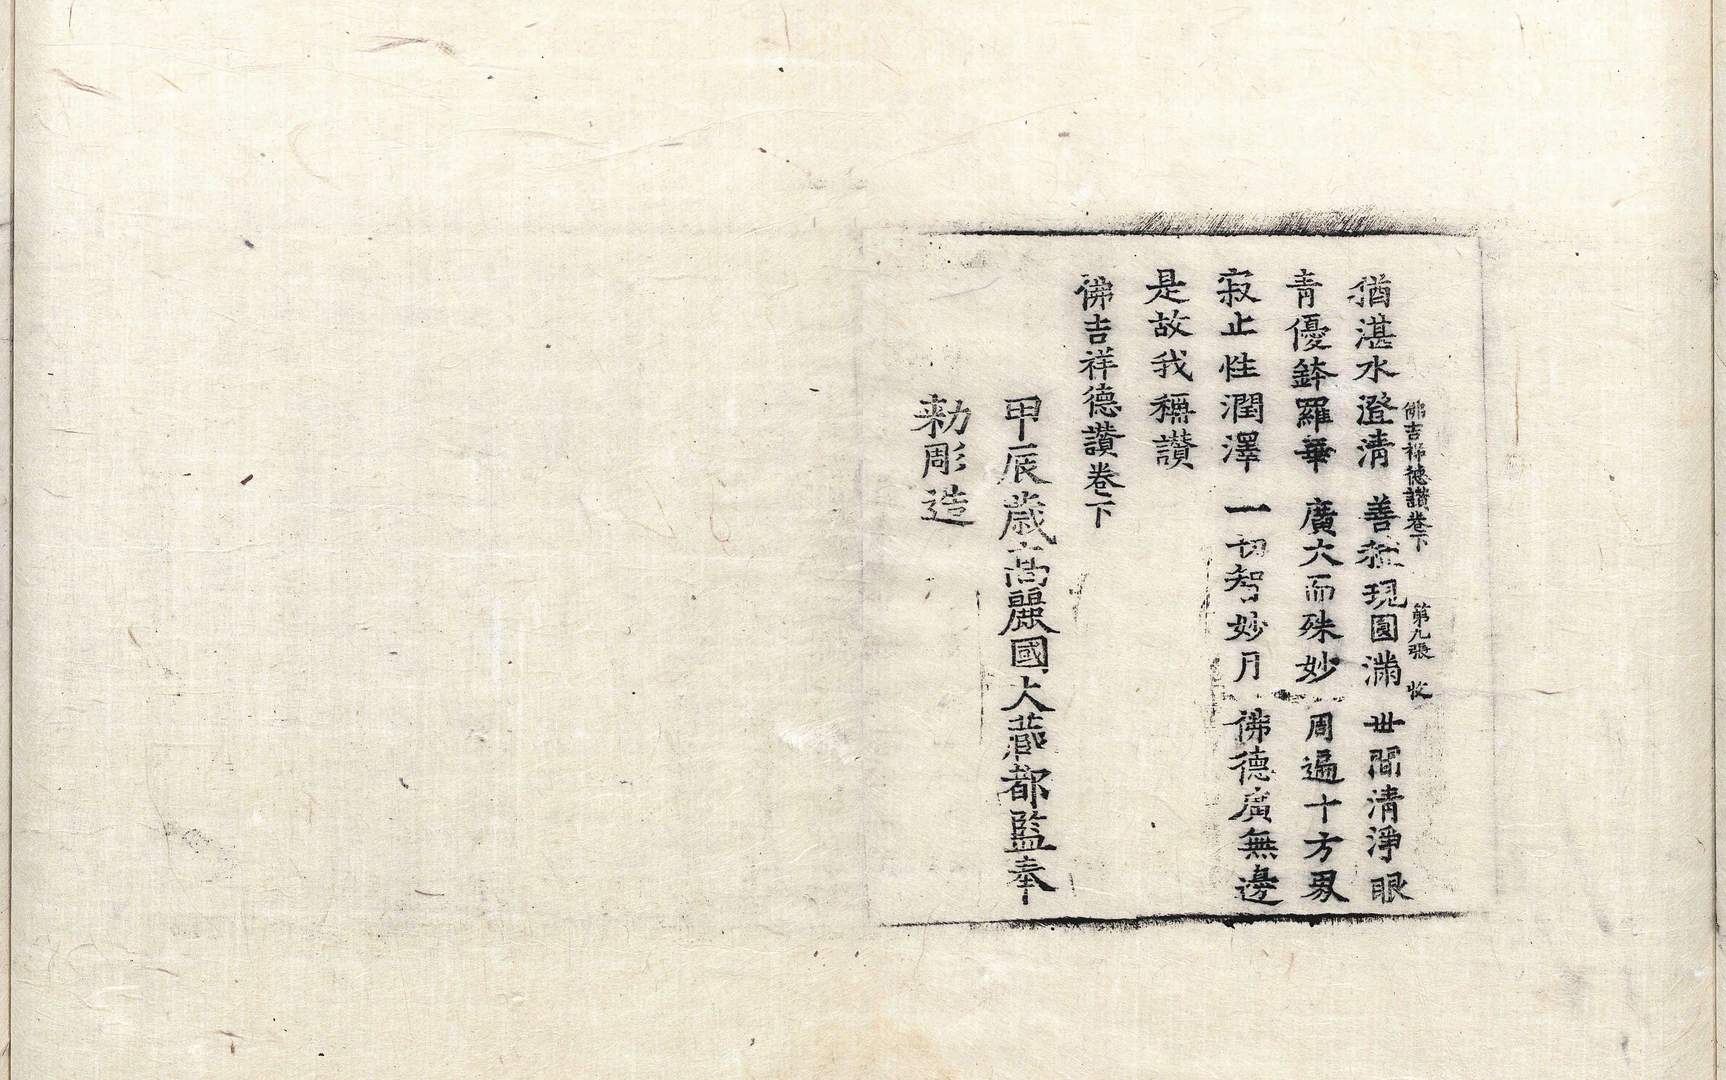 佛吉祥德讚卷下 第九張 收
猶湛水澄清 善現圓滿 世間清淨眼
青優鉢羅華 廣大而殊妙 周遍十方界
寂止性潤澤 一切智妙月 佛德廣無邊
是故我稱讚
佛吉祥德讚卷下
甲辰歲高麗國大藏都監奉
勅彫造